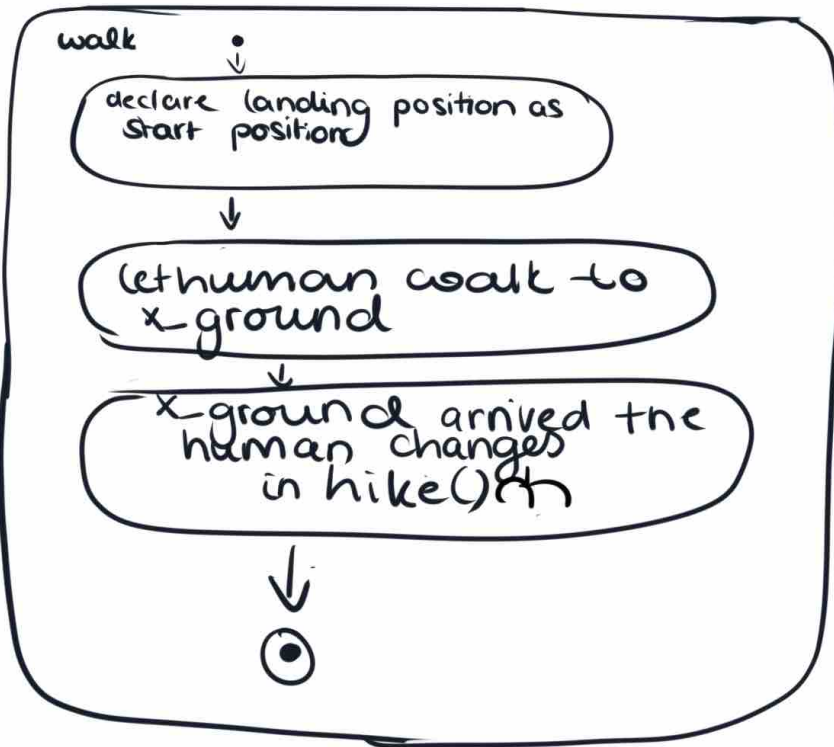 walk
declare landing position as
start position
let human walk to
x_ground
x_ground arrived the
human changes
in hike()